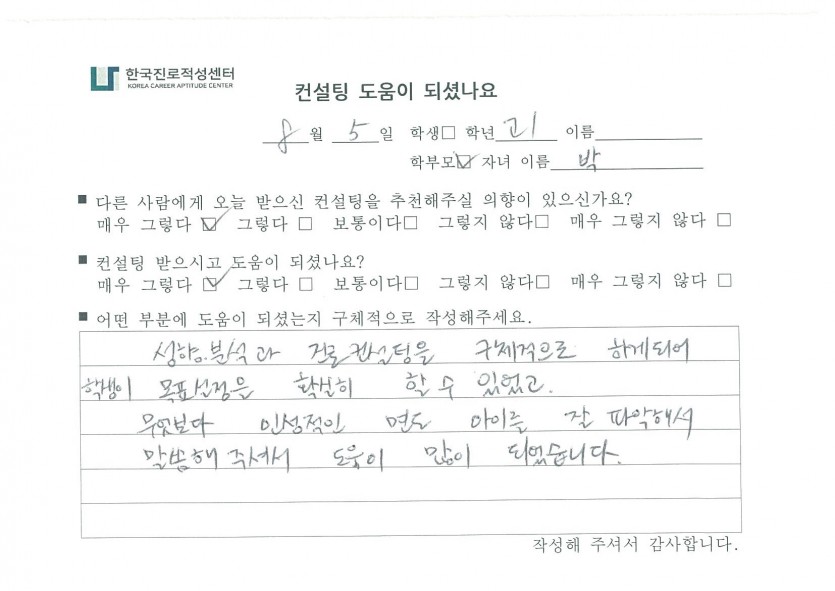 한국진로적성센터
KOREA CAREER APTITUDE CENTER
컨설팅 도움이 되셨나요
8월 5일 학생□ 학년 고1 이름
학부모☑ 자녀 이름 박
■ 다른 사람에게 오늘 받으신 컨설팅을 추천해주실 의향이 있으신가요?
매우 그렇다 ☑ 그렇다 □ 보통이다□ 그렇지 않다□ 매우 그렇지 않다 □
■ 컨설팅 받으시고 도움이 되셨나요?
매우 그렇다 ☑ 그렇다 □ 보통이다□ 그렇지 않다□ 매우 그렇지 않다 □
■ 어떤 부분에 도움이 되셨는지 구체적으로 작성해주세요.
성향.분석과 진로컨설팅을 구체적으로 하게되어
학생이 목표설정을 확실히 할 수 있었고.
무엇보다 인성적인 면도 아이를 잘 파악해서
말씀해 주셔서 도움이 많이 되었습니다.
작성해 주셔서 감사합니다.